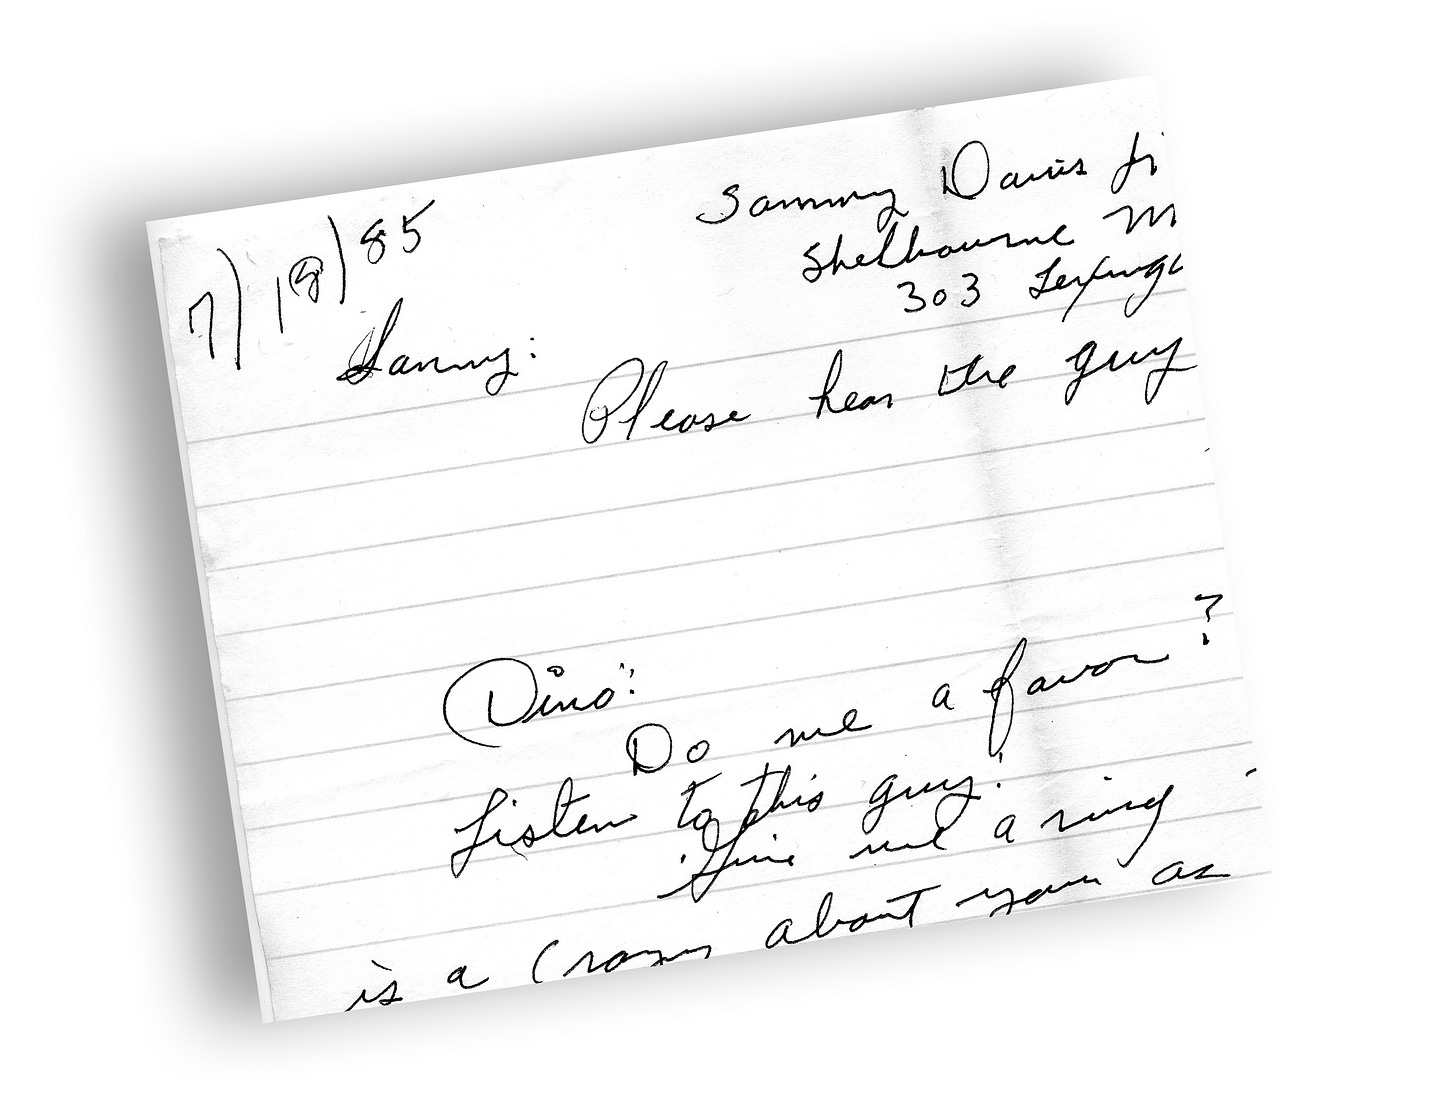 7/18/85
Sammy Davis Jr
Shelbourne M
303 Lexingt
Sammy:
Please hear the guy
Dino:
Do me a favor?
Listen to this guy!
Give me a ring
is a crazy about your as